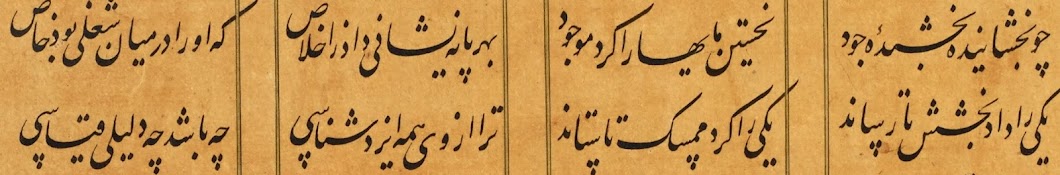 چو بخشاینده بخشندهٔ جود نخستین مایها را کرد موجود بهر پایه نشانی داد از اخلاص که او را در میان شغلی بود خاص
یکی را داد بخشش تا رساند یکی را کرد ممسک تا ستاند ترا از وی همه ایزد شناسی چه باشد چه دلیلی قیاسی